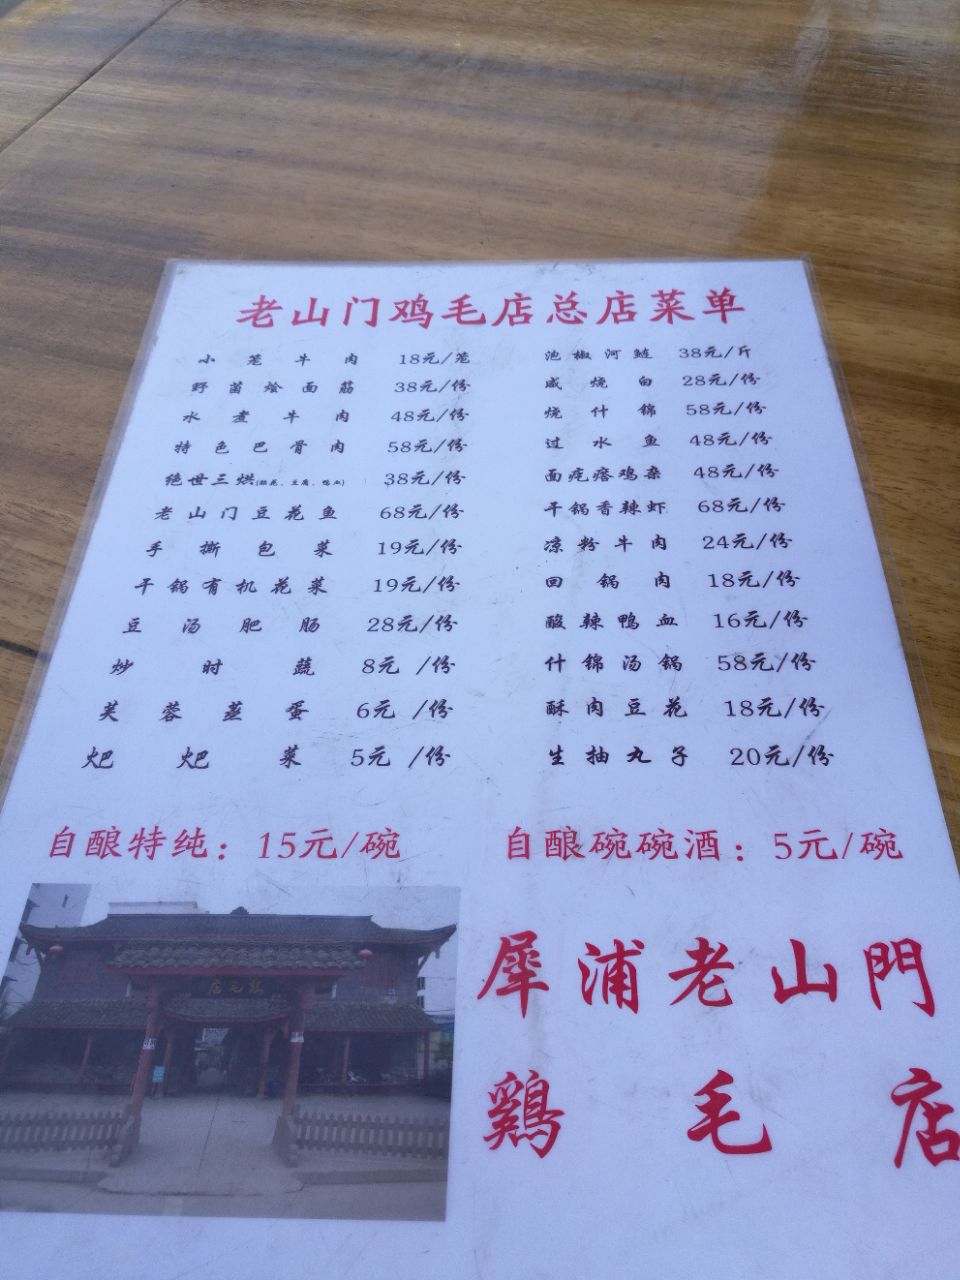 老山门鸡毛店总店菜单
小笼牛肉 18元/笼
野菌烩面筋 38元/份
水煮牛肉 48元/份
特色巴骨肉 58元/份
绝世三烘(脑花、豆腐、鸭血) 38元/份
老山门豆花鱼 68元/份
手撕包菜 19元/份
干锅有机花菜 19元/份
豆汤肥肠 28元/份
炒时蔬 8元/份
芙蓉蒸蛋 6元/份
火巴火巴菜 5元/份
泡椒河鲢 38元/斤
咸烧白 28元/份
烧什锦 58元/份
过水鱼 48元/份
面疙瘩鸡杂 48元/份
干锅香辣虾 68元/份
凉粉牛肉 24元/份
回锅肉 18元/份
酸辣鸭血 16元/份
什锦汤锅 58元/份
酥肉豆花 18元/份
生抽丸子 20元/份
自酿特纯：15元/碗
自酿碗碗酒：5元/碗
店毛鷄
犀浦老山門
鷄毛店